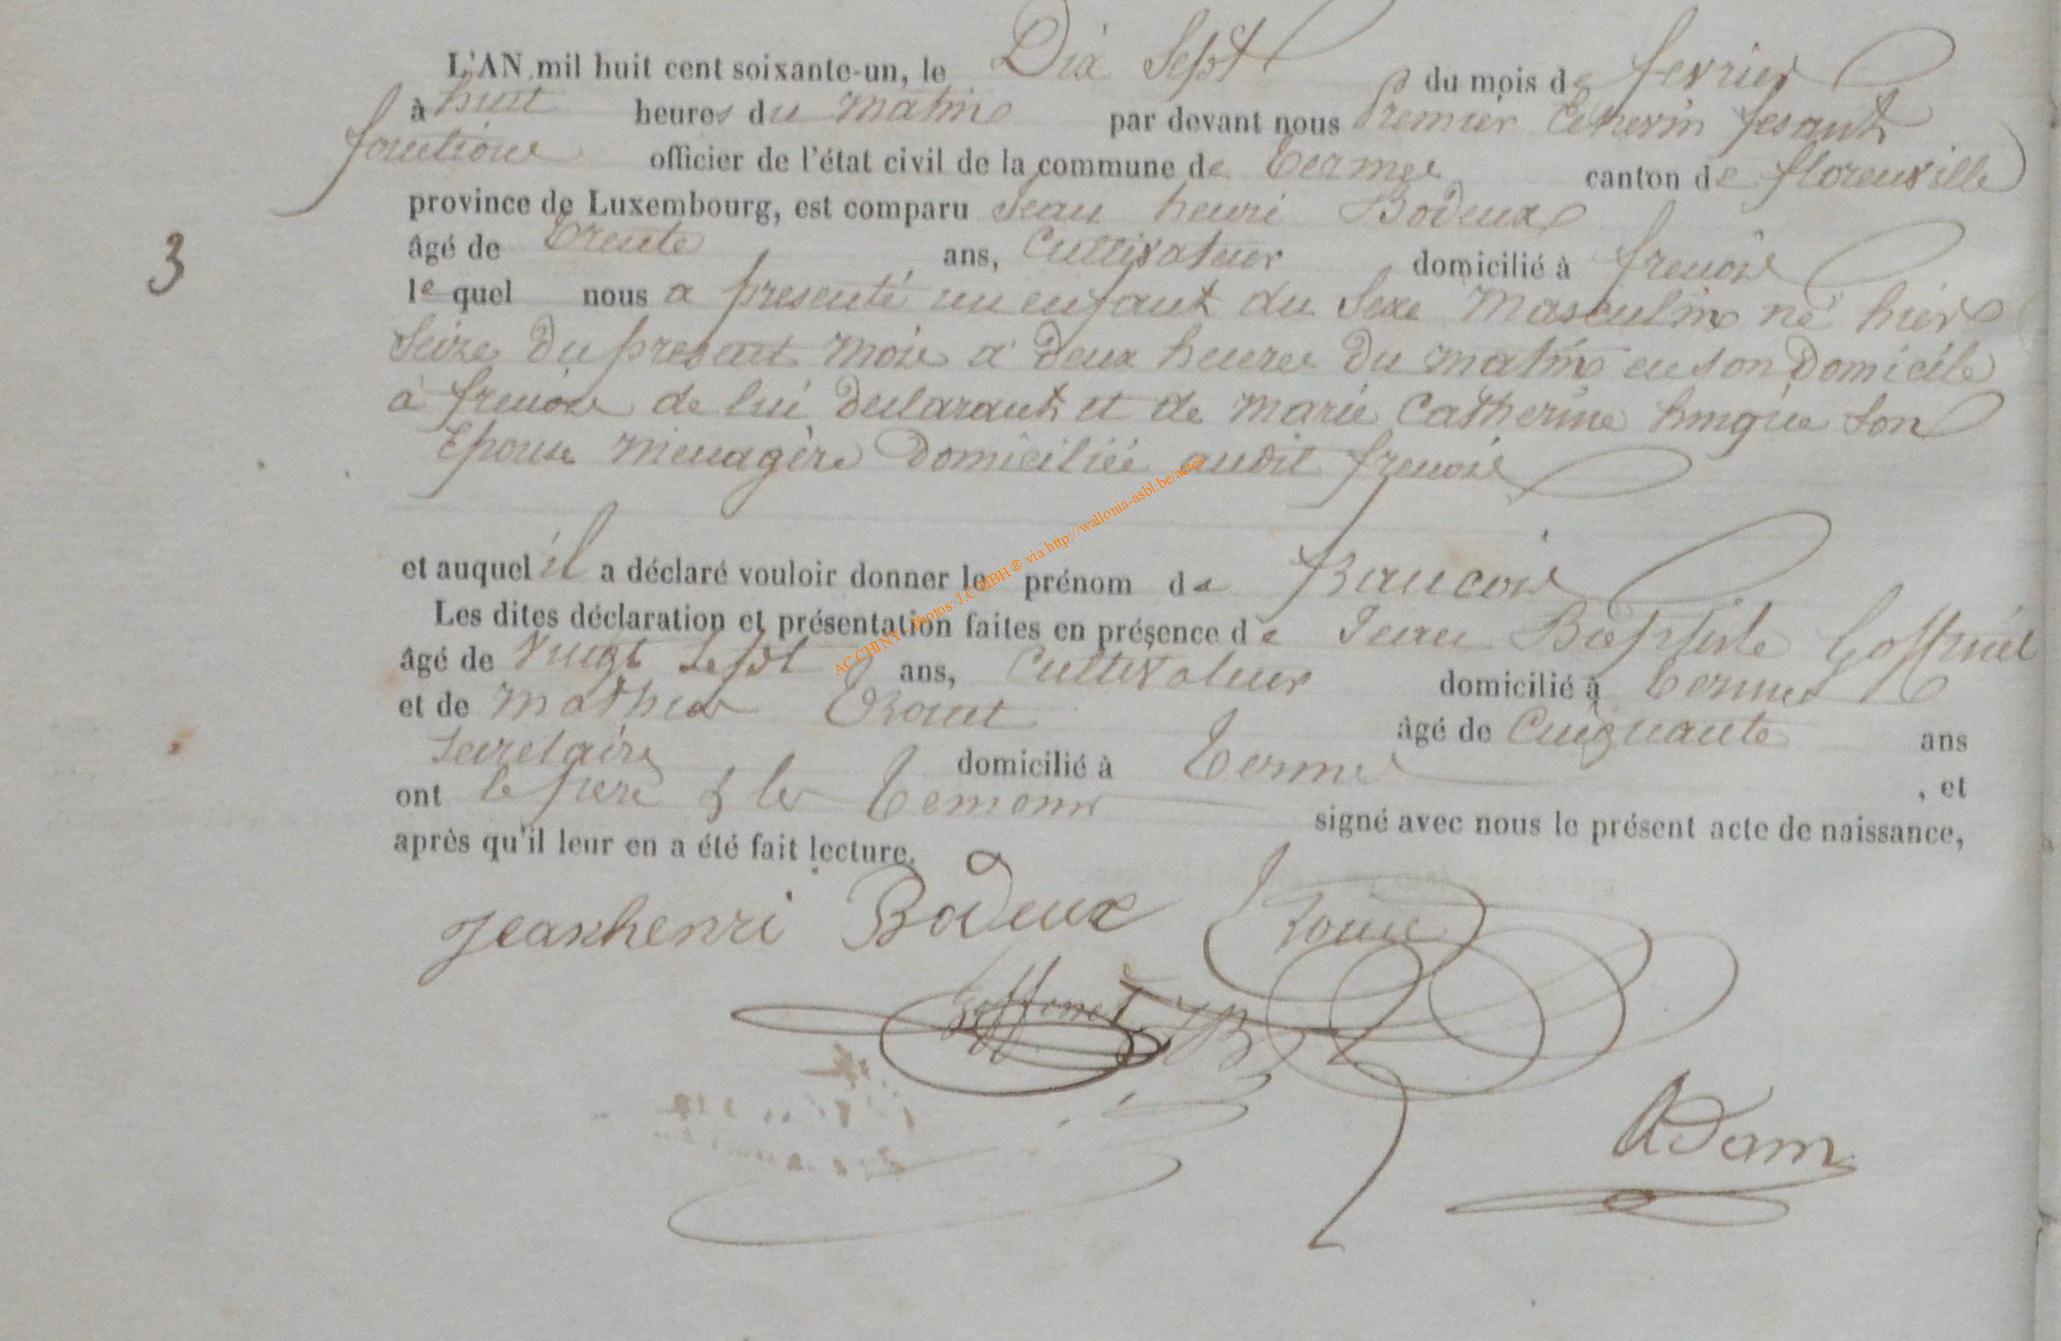 L'AN mil huit cent soixante-un, le Dix Sept du mois de fevrier
à huit heures du matin par devant nous Premier Echevin fesant
fonctions officier de l'état civil de la commune de Termes canton de florenville
province de Luxembourg, est comparu Jean henri Bodeux
âgé de trente ans, Cultivateur domicilié à frenois
3
le quel nous a presenté un enfant du Sexe Masculin né hier
Seize du present mois à deux heures du matin en son Domicile
à frenois de lui declarant et de marie Catherine son
Epouse menagère Domiciliée audit frenois
et auquel il a déclaré vouloir donner le prénom de francois
Les dites déclaration et présentation faites en présence de Jean Baptiste
âgé de Vingt Sept ans, Cultivateur domicilié à Termes
et de Mathieu âgé de Cinquante ans
Secretaire domicilié à Termes
ont le pere & les Temoins , et
signé avec nous le présent acte de naissance,
après qu'il leur en a été fait lecture.
Jeanhenri Bodeux
Goffinet JB
Adam
AC CHINY - Photos: J.C MBH® via http://wallonia-asbl.be/actes